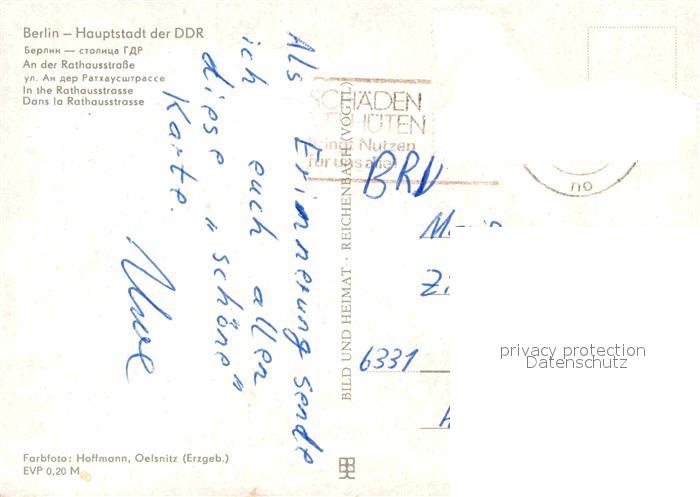 Berlin – Hauptstadt der DDR
Берлин — столица ГДР
An der Rathausstraße
ул. Ан дер Ратхаусштрассе
In the Rathausstrasse
Dans la Rathausstrasse
Als Erinnerung sende
ich euch allen
diese „schöne"
Karte.
SCHÄDEN
HÜTEN
Nutzen
für uns alle
no
BRD
M
Z
6331
privacy protection
Datenschutz
BILD UND HEIMAT · REICHENBACH (VOGTL)
Farbfoto: Hoffmann, Oelsnitz (Erzgeb.)
EVP 0,20 M